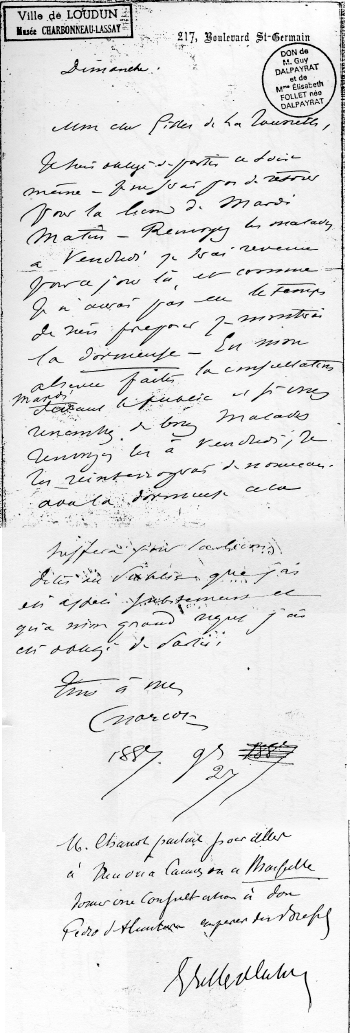 Ville de LOUDUN
Musée CHARBONNEAU-LASSAY
217, Boulevard St-Germain
DON de
M. Guy
DALPAYRAT
et de
Mme Elisabeth
FOLLET née
DALPAYRAT
Dimanche.
Mon cher Gilles de la Tourette,
Je suis obligé de partir ce soir
même – Je ne serai pas de retour
pour la leçon de Mardi
Matin – Renvoyez les malades
à Vendredi je serai revenu
pour ce jour là, et comme
je n'aurai pas eu le temps
de rien préparer je montrerai
la dormeuse – En mon
absence faites la consultation
mardi
devant le public et si vous
rencontrez de bons Malades
renvoyez les à Vendredi, je
les réinterrogerai de nouveau.
avec la dormeuse cela
suffira pour la leçon
dites au public que j'ai
été appelé subitement et
qu'à mon grand regret j'ai
été obligé de partir
Tout à vous
Charcot
1887. 9bre 1887
27
M. Charcot partait pour aller
à ou à Cannes ou à Marseille
donner une consultation à don
Pedro d'Alcantara empereur du Brésil